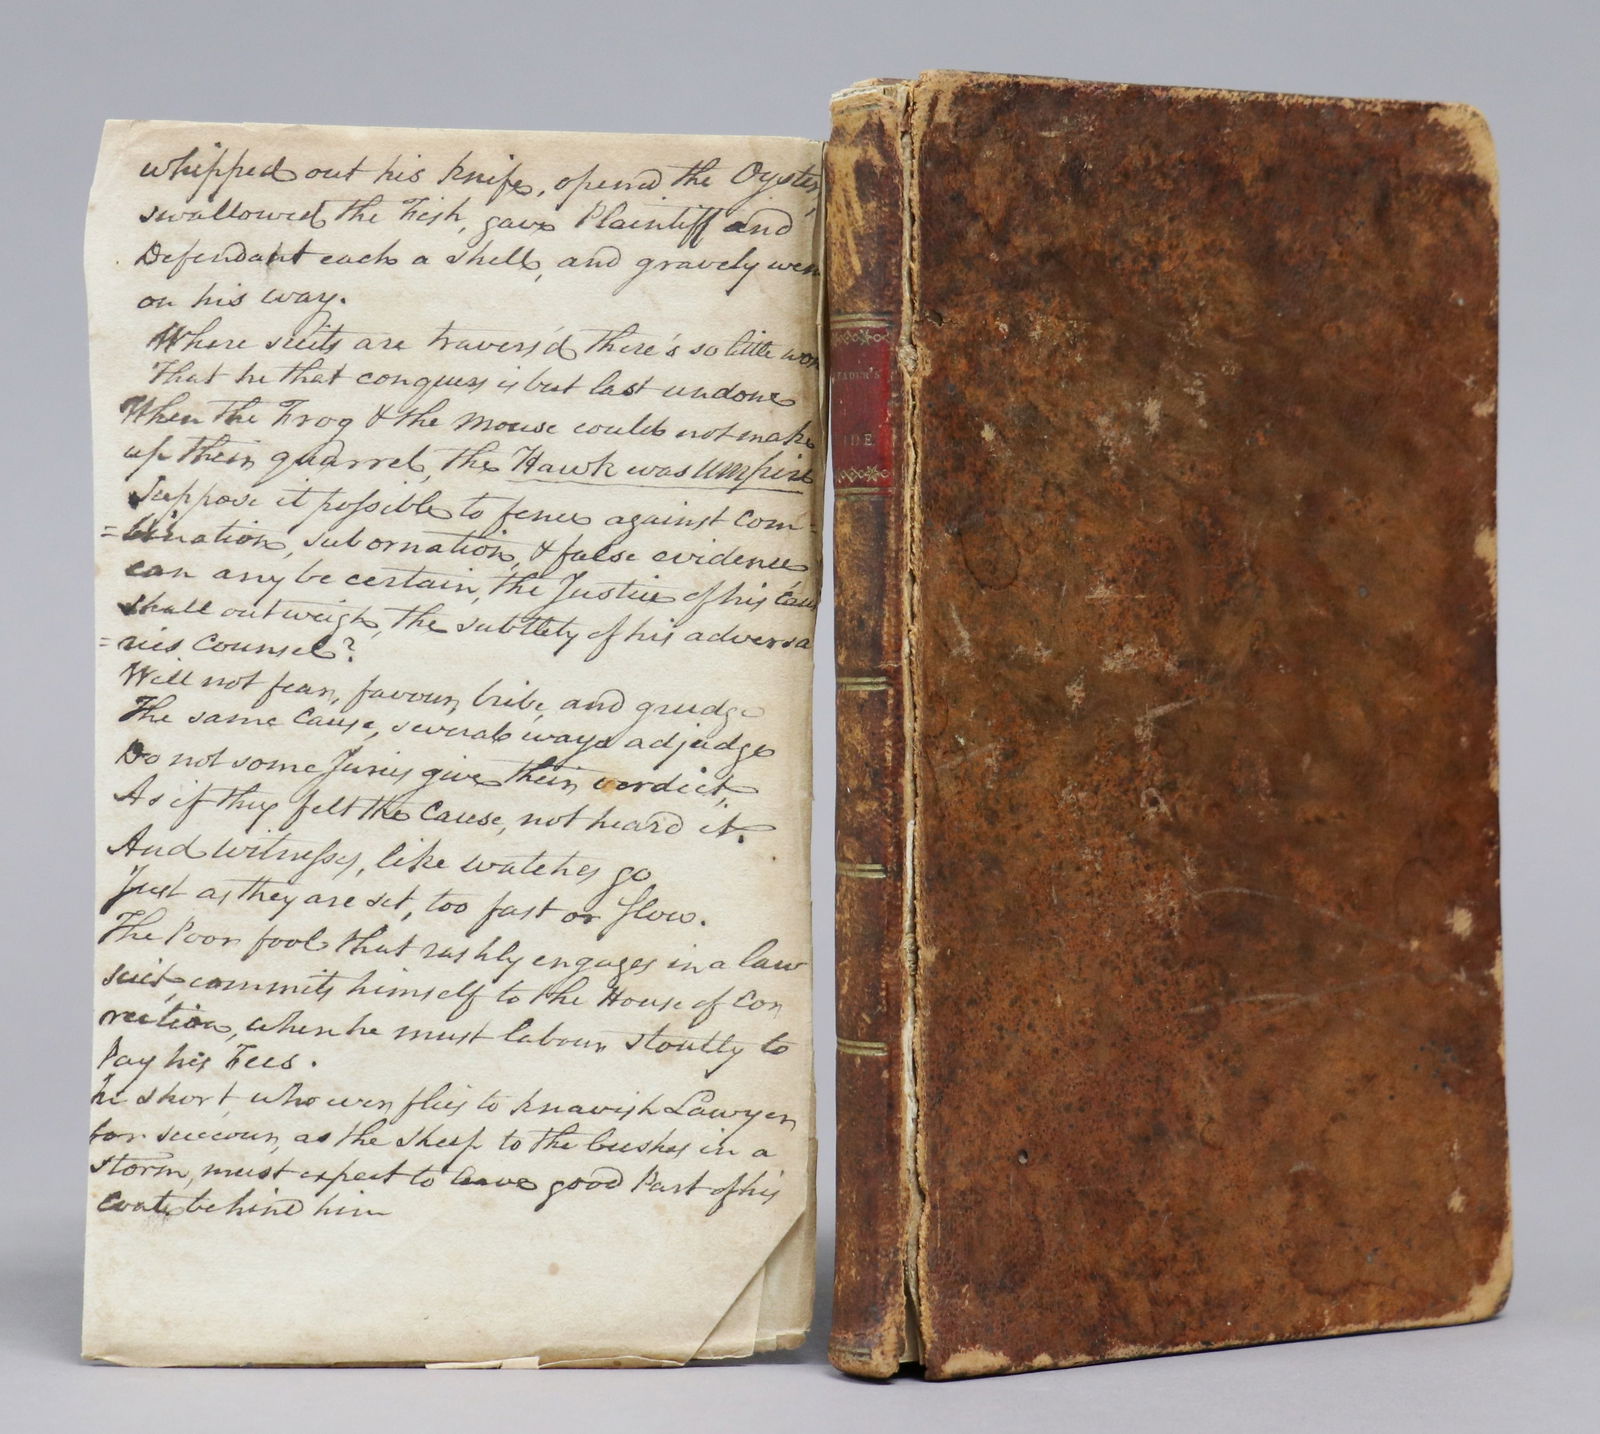 whipped out his knife, opend the Oyster,
swallowed the Fish, gave Plaintiff and
Defendant each a shell, and gravely wen
on his way.
Where suits are travers'd there's so little won
That he that conquers is but last undone
When the Frog & the Mouse could not make
up their quarrel, the Hawk was Umpire
Suppose it possible to fence against Com-
=bination, subornation, & false evidence
can any be certain, the Justice of his Caus
shall outweigh, the subtlety of his adversa
=ries Counsel?
Will not fear, favour, bribe, and grudge
The same Cause, several ways adjudge
Do not some Juries give their verdict,
As if they felt the Cause, not heard it.
And witnesses, like watches go
Just as they are set, too fast or slow.
The Poor fool that rashly engages in a law
suit, commits himself to the House of Cor
rection, when he must labour stoutly to
Pay his Fees.
he short, who ever flies to knavish Lawyer
for succour, as the sheep to the bushes in a
storm, must expect to leave good Part of his
Coat behind him
EADER'S
IDE